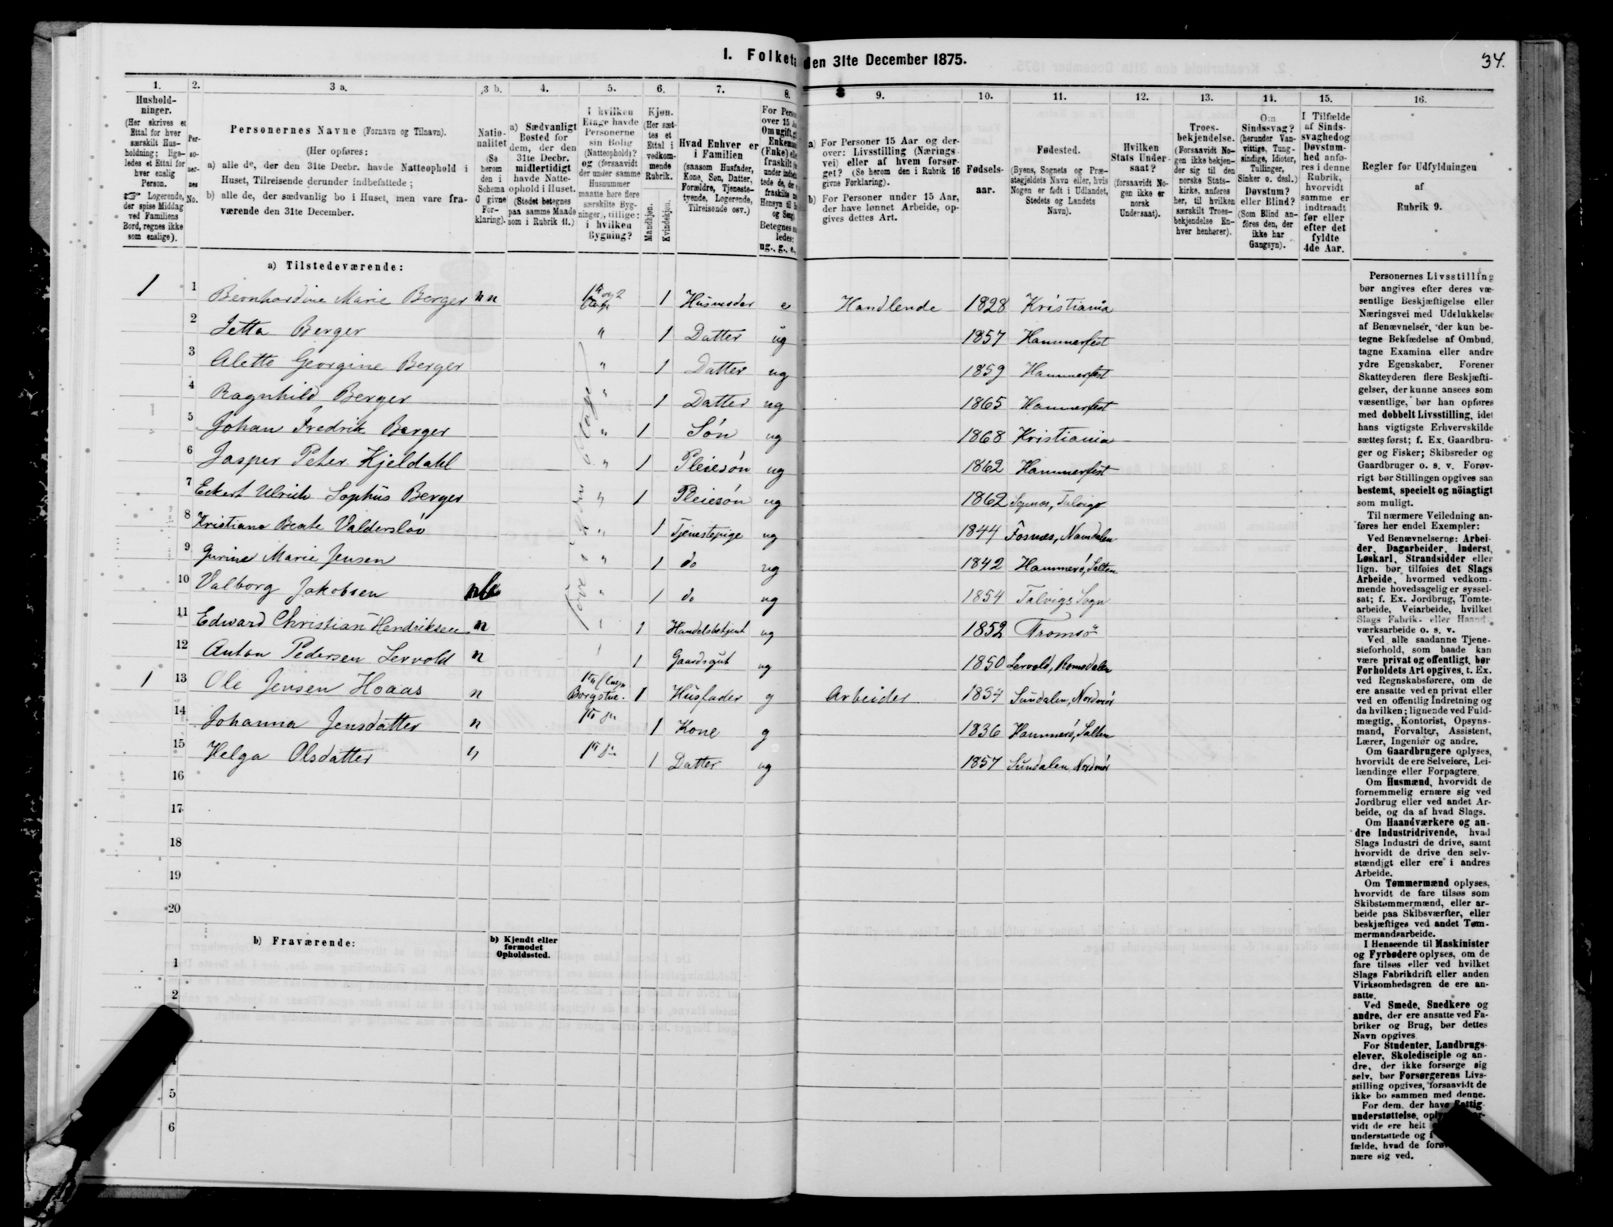 34.
I. Folketæ
den 31te December 1875.
1. 2. 3 a. 3 b. 4. 5. 6. 7. 8. 9. 10. 11. 12. 13. 14. 15. 16.
Hushold-
ninger.
(Her skrives et
Ettal for hver
særskilt Hus-
holdning; lige-
ledes et Ettal for
hver enslig
Person.
Logerende,
der spise Middag
ved Familiens
Bord, regnes ikke
som enslige).
Per-
so-
ner-
nes
No.
Personernes Navne (Fornavn og Tilnavn).
(Her opføres:
a) alle de, der den 31te Decbr. havde Natteophold i
Huset, Tilreisende derunder indbefattede;
b) alle de, der sædvanlig bo i Huset, men vare fra-
værende den 31te December.
Natio-
nalitet
(Se
herom
den i
Schema
givne
For-
klaring).
a) Sædvanligt
Bosted for
dem, der den
31te Decbr.
midlertidigt
havde Natte-
ophold i Huset.
(Stedet betegnes
paa samme Maade
som i Rubrik 11.)
I hvilken
Etage havde
Personerne
sin Bolig
(Natteophold)?
og (forsaavidt
der under samme
Husnummer
maatte høre flere
særskilte Byg-
ninger, tillige:
i hvilken
Bygning?
Kjøn.
(Her sæt-
tes et
Ettal i
vedkom-
mende
Rubrik.
Mandkjøn.
Kvindekjøn.
Hvad Enhver er
i Familien
(saasom Husfader,
Kone, Søn, Datter,
Forældre, Tjeneste-
tyende, Logerende,
Tilreisende osv.)
For Perso
over 15 A
Om ugift, g
Enkeman
(Enke) ell
fraskilt
ug., g., e.
a) For Personer 15 Aar og der-
over: Livsstilling (Nærings-
vei) eller af hvem forsør-
get? (Se herom den i Rubrik 16
givne Forklaring).
b) For Personer under 15 Aar,
der have lønnet Arbeide, op-
gives dettes Art.
Fødsels-
aar.
Fødested.
(Byens, Sognets og Præ-
stegjeldets Navn eller, hvis
Nogen er født i Udlandet,
Stedets og Landets
Navn).
Hvilken
Stats Under-
saat?
(forsaavidt No-
gen ikke er
norsk
Undersaat).
Troes-
bekjendelse.
(Forsaavidt No-
gen ikke bekjen-
der sig til den
norske Stats-
kirke, anføres
her, til hvilken
særskilt Troes-
bekjendelse En-
hver henhører).
Om
Sindssvag?
(herunder Van-
vittige, Tung-
sindige, Idioter,
Tullinger,
Sinker o. desl.)
Døvstum?
eller Blind?
(Som Blind an-
føres den, der
ikke har
Gangsyn).
I Tilfælde
af Sinds-
svaghed og
Døvstum-
hed anfø-
res i denne
Rubrik,
hvorvidt
samme er
indtraadt
før eller
efter det
fyldte
4de Aar.
Regler for Udfyldningen
af
Rubrik 9.
a) Tilstedeværende:
1 1 Bernhardine Marie Berger n 1 Husmoder e Handlende 1828 Kristiania
2 Jetta Berger " 1 Datter ug 1857 Hammerfest
3 Aletta Georgine Berger " 1 Datter ug 1859 Hammerfest
4 Ragnhild Berger " 1 Datter ug 1865 Hammerfest
5 Johan Fredrik Berger " 1 Søn ug 1868 Kristiania
6 Jasper Peter Kjeldahl " 1 Pleiesøn ug 1862 Hammerfest
7 Eckert Ulrich Sophus Berger " 1 Pleiesøn ug 1862 Talvigs
8 Kristiana Beate Valdersløv " 1 Tjenestepige ug 1844 Fosnæs, Namdalen
9 Gurine Marie Jensen " 1 do ug 1842 Hammerø, Salten
10 Valborg Jakobsen " 1 do ug 1854 Talvigs Sogn
11 Edward Christian Hendriksen n 1 Handelsbetjent ug 1852 Tromsø
12 Anton Pedersen Lervold n 1 Gaardsgut ug 1850 Lervold, Romsdalen
1 13 Ole Jensen Hoaas n Borgstue. 1 Husfader g Arbeider 1834 Sundalen, Nordmør
14 Johanna Jensdatter n 1 Kone g 1836 Hammerø, Salten
15 Helga Olsdatter n 1 Datter ug 1857 Sundalen, Nordmør
16
17
18
19
20
b) Fraværende:
b) Kjendt eller
formodet
Opholdssted.
1
2
5
6
Personernes Livsstilling
bør angives efter deres væ-
sentlige Beskjæftigelse eller
Næringsvei med Udelukkelse
af Benævnelser, der kun be-
tegne Bekfædelse af Ombud,
tagne Examina eller andre
ydre Egenskaber. Forener
Skatteyderen flere Beskjæfti-
gelser, der kunne ansees som
væsentlige, bør han opføres
med dobbelt Livsstilling, idet
hans vigtigste Erhvervskilde
sættes først; f. Ex. Gaardbru-
ger og Fisker; Skibsreder og
Gaardbruger o. s. v. Forøv-
rigt bør Stillingen opgives saa
bestemt, specielt og nöiagtigt
som muligt.
Til nærmere Veiledning an-
føres her endel Exempler:
Ved Benævnelserne: Arbei-
der, Dagarbeider, Inderst,
Løskarl, Strandsidder eller
lign. bør tilføies det Slags
Arbeide, hvormed vedkom-
mende hovedsagelig er syssel-
sat; f. Ex. Jordbrug, Tomte-
arbeide, Veiarbeide, hvilket
Slags Fabrik- eller Haand-
værksarbeide o. s. v.
Ved alle saadanne Tjene-
steforhold, som baade kan
være privat og offentligt, bør
Forholdets Art opgives, t. Ex.
ved Regnskabsførere, om de
ere ansatte ved en privat eller
ved en offentlig Indretning og
da hvilken; lignende ved Fuld-
mægtig, Kontorist, Opsyns-
mand, Forvalter, Assistent,
Lærer, Ingeniør og andre.
Om Gaardbrugere oplyses,
hvorvidt de ere Selveiere, Lei-
lændinge eller Forpagtere.
Om Husmænd, hvorvidt de
fornemmelig ernære sig ved
Jordbrug eller ved andet Ar-
beide, og da af hvad Slags.
Om Haandværkere og an-
dre Industridrivende, hvad
Slags Industri de drive, samt
hvorvidt de drive den selv-
stændigt eller ere i andres
Arbeide.
Om Tømmermænd oplyses,
hvorvidt de fare tilsøs som
Skibstømmermænd, eller ar-
beide paa Skibsværfter, eller
beskjæftiges ved andet Tøm-
mermandsarbeide.
I Henseende til Maskinister
og Fyrbødere oplyses, om de
fare tilsøs eller ved hvilket
Slags Fabrikdrift eller anden
Virksomhedsgren de ere an-
satte.
Ved Smede, Snedkere og
andre, der ere ansatte ved Fa-
briker og Brug, bør dettes
Navn opgives.
For Studenter, Landbrugs-
elever, Skoledisciple og an-
dre, der ikke forsørge sig
selv, bør Forsørgerens Livs-
stilling opgives, forsaavidt de
ikke bo sammen med denne.
For dem, der have Fattig-
understøttelse,
vidt de ere helt
understøttede og
fælde, hvad de
nære sig ved.